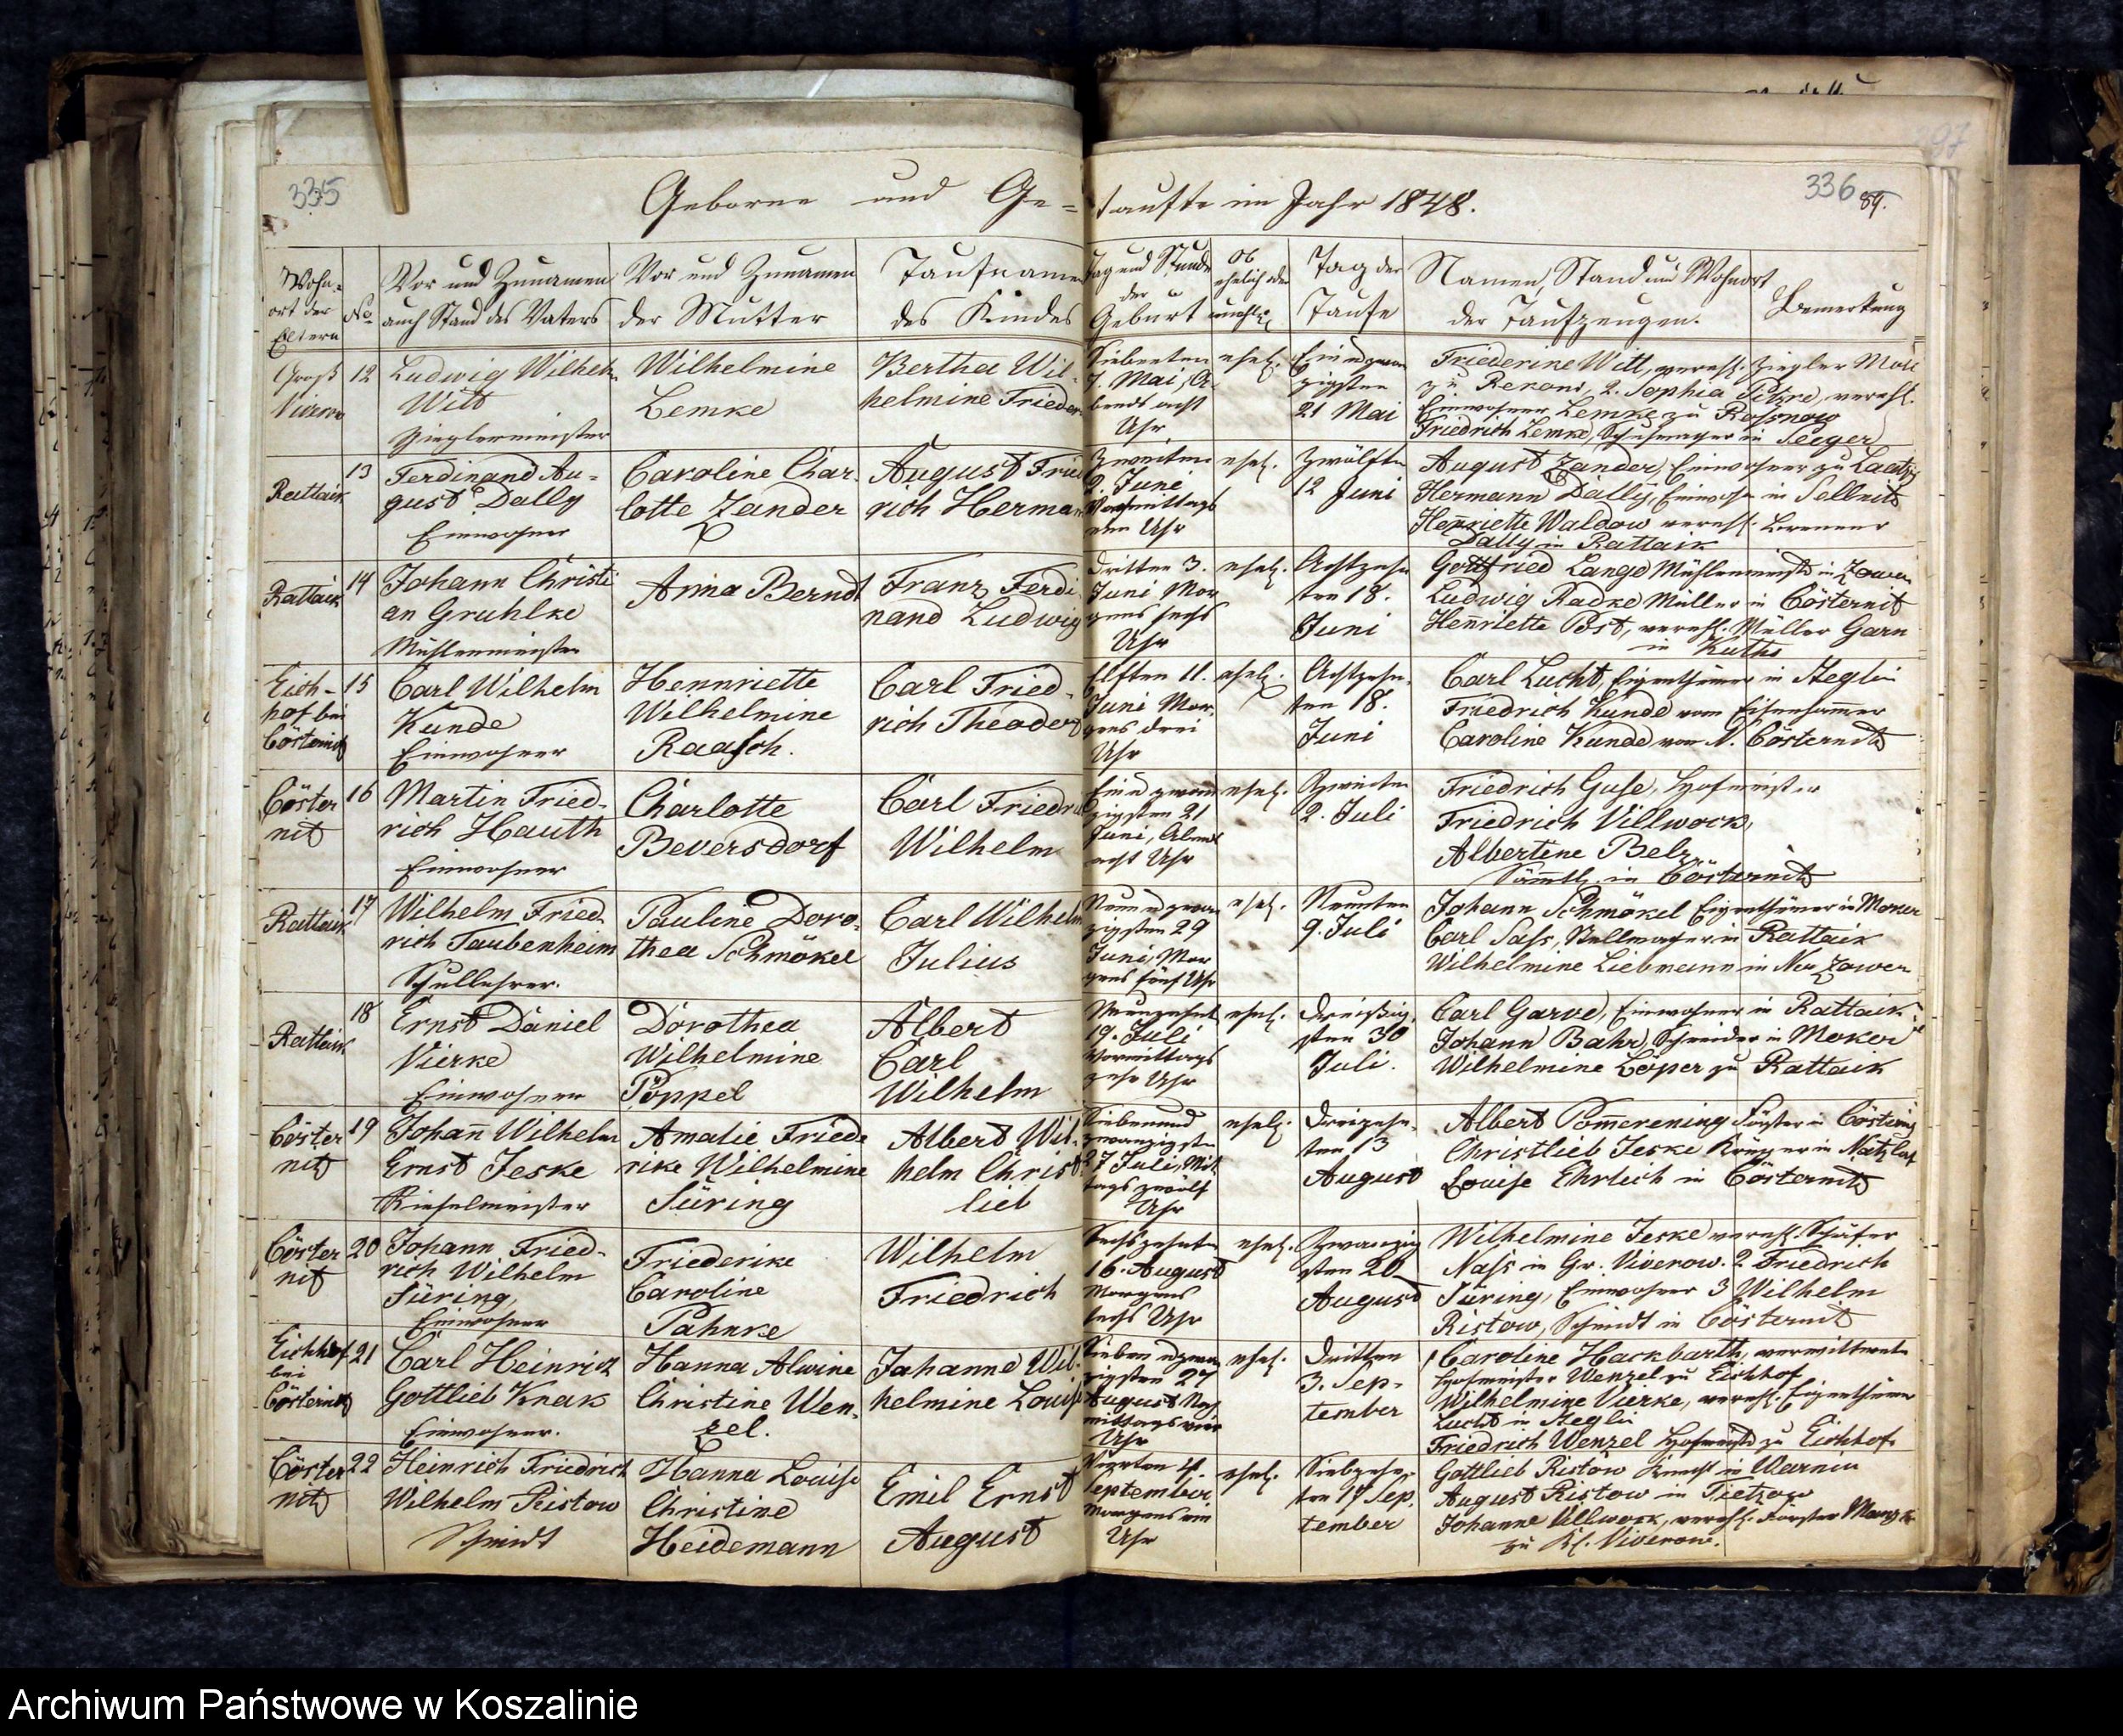 335
336
89.
397
Geborne und Ge=
taufte im Jahr 1848.
Wohn=
ort der
Eltern
No
Vor und Zunamen
auch Stand des Vaters
Vor und Zunamen
der Mutter
Taufnamen
des Kindes
Tag und Stunde
der
Geburt
Ob
ehelich oder
unehl.
Tag der
Taufe
Namen, Stand und Wohnort
der Taufzeugen.
Bemerkung
Groß
12
Ludwig Wilhelm
Witt
Zieglermeister
Wilhelmine
Lemke
Bertha Wil-
helmine
Siebenten
7. Mai, A-
bends acht
Uhr
ehel.
Ein u zwan
zigsten
21 Mai
Friederine Witt, verehl. Ziegler
verehl.
Einwohner Lemke zu Rossnow
Friedrich Lemke, Schuhmacher in Seeger
Rattaik
13
Ferdinand Au-
gust Dally
Einwohner
Caroline Char-
lotte Zander
August Fried
rich Herman
Zweiten
2. June
Uhr
ehel.
Zwölften
12 Juni
August Zander, Einwohner zu
Hermann Dally, Einwohn in
Henriette Waldow verehl.
Dally in Rattaik
Rattaik
14
Johann Christi
an Gruhlke
Mühlenmeister
Anna Berndt
Franz Ferdi
nand Ludwig
Dritten 3.
Juni Mor
gens sechs
Uhr
ehel.
Achtzehn
ten 18.
Juni
Gottfried Lange Mühlenmeister in Zowen
Ludwig Radke Müller in Cösternitz
Henriette Post, verehl. Müller Garn
in
Eich-
hof bei
Cösternitz
15
Carl Wilhelm
Kunde
Einwohner
Hennriette
Wilhelmine
Raasch.
Carl Fried-
rich Theodor
Elften 11.
Juni Mor-
gens drei
Uhr
ehel.
Achtzehn-
ten 18.
Juni
Carl Lucht, Eigenthümer in Steglin
Friedrich Kunde vom Eisenhammer
Caroline Kunde von N. Cösternitz
Cöster
nitz
16
Martin Fried-
rich Hauth
Einwohner
Charlotte
Beversdorf
Carl Friedri
Wilhelm
Ein u zwan
zigsten 21
Juni, Abend
acht Uhr
ehel.
Zweiten
2. Juli
Friedrich Guse, Hofmeister
Friedrich Villwock,
Albertine Belz
Sämmtl. in Cösternitz
Rattaik
17
Wilhelm Fried-
rich Taubenheim
Schullehrer.
Pauline Doro-
thea Schmökel
Carl Wilhelm
Julius
Neun u zwan
zigsten 29
Juni, Mor
gens fünf Uhr
ehel.
Neunten
9. Juli
Johann Schmökel Eigenthümer in Moker
Carl Sass, Stellmacher in Rattaik
Wilhelmine Liebmann in Neu Zowen
Rattaik
18
Ernst Daniel
Vierke
Einwohner
Dorothea
Wilhelmine
Pöppel
Albert
Carl
Wilhelm
Neunzehnt
19. Juli
Vormittags
zehn Uhr
ehel.
Dreißig-
sten 30
Juli.
Carl Garve, Einwohner in Rattaik
Johann Bahr, Schneider in Moker
Wilhelmine Löper zu Rattaik
Cöster
nitz
19
Johann Wilhelm
Ernst Jeske
Rieselmeister
Amalie Friede
rike Wilhelmine
Süring
Albert Wil-
helm Christ
lieb
Siebenund
zwanzigsten
27 Juli, Mit
tags zwölf
Uhr
ehel.
Dreizehn-
ten 13
August
Albert Pommerening Förster in Cösternitz
Christlieb Jeske Krüger in Natzlaf
Louise Ehrlich in Cösternitz
Cöster
nitz
20
Johann Fried-
rich Wilhelm
Süring,
Einwohner
Friederike
Caroline
Pahnke
Wilhelm
Friedrich
Sechszehnten
16. August
Morgens
sechs Uhr
ehel.
Zwanzig
sten 20
August
Wilhelmine Jeske verehl. Schäfer
Nass in Gr. Viverow. 2 Friedrich
Süring, Einwohner 3 Wilhelm
Ristow, Schmidt in Cösternitz
Eichhof
bei
Cösternitz
21
Carl Heinrich
Gottlieb Knak
Einwohner.
Hanna Alwine
Christine Wen-
zel.
Johanne Wil-
helmine Louise
Sieben u zwan
zigsten 27
August Nach
mittags vier
Uhr
ehel.
Dritten
3. Sep-
tember
Caroline Hackbarth, verwittwete
Hofmeister Wenzel zu Eichhof
Wilhelmine Vierke, verehl. Eigenthümer
Lucht in Steglin
Friedrich Wenzel Hofmeister zu Eichhof
Cöster
nitz
22
Heinrich Friedrich
Wilhelm Ristow
Schmidt
Hanna Louise
Christine
Heidemann
Emil Ernst
August
September
Morgens ein
Uhr
ehel.
Siebzehn-
ten 17 Sep-
tember
Gottlieb Ristow Knecht in Warnin
August Ristow in Tietzow
Johanne Villwock, verehl. Förster
zu Kl. Viverow.
Archiwum Państwowe w Koszalinie